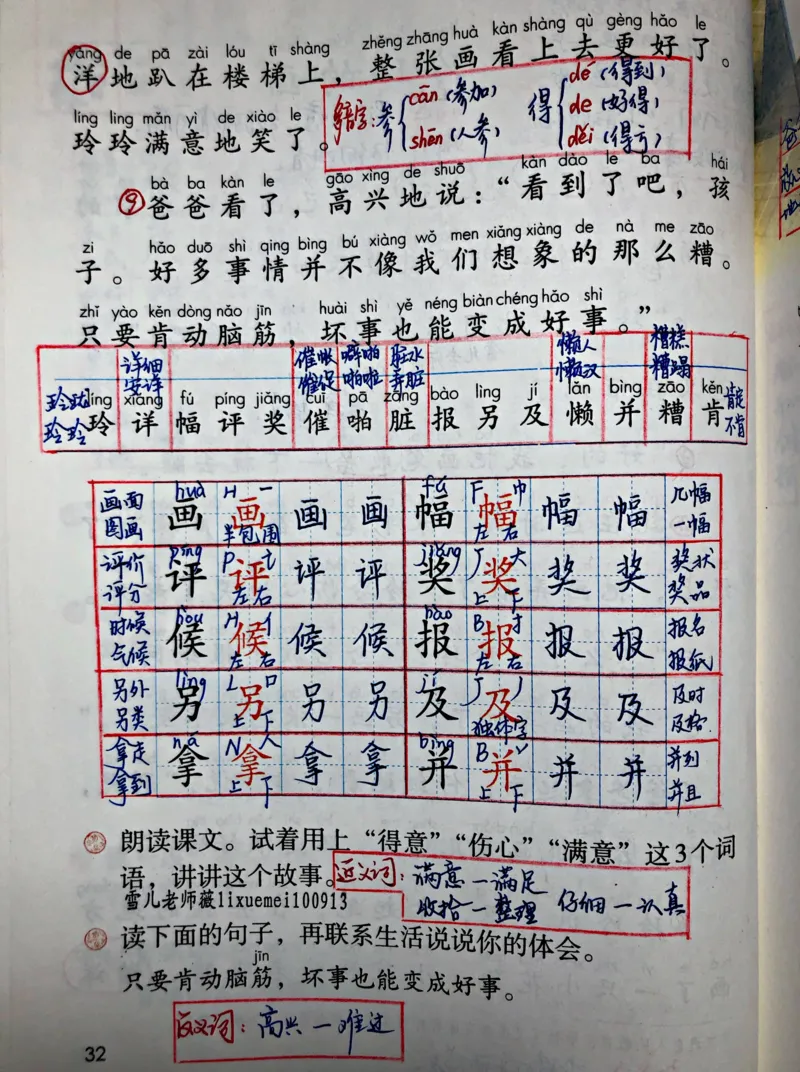 yáng de pā zài lóu tī shàng zhěng zhāng huà kàn shàng qù gèng hǎo le
洋地趴在楼梯上，整张画看上去更好了。
多音字：参 cān（参加） shēn（人参） 得 dé（得到） de（好得） děi（得亏）
líng ling mǎn yì de xiào le
玲玲满意地笑了。
bà ba kàn le gāo xìng de shuō kàn dào le ba hái
⑨爸爸看了，高兴地说：“看到了吧，孩
zi hǎo duō shì qing bìng bú xiàng wǒ men xiǎng xiàng de nà me zāo
子。好多事情并不像我们想象的那么糟。
zhǐ yào kěn dòng nǎo jīn huài shì yě néng biàn chéng hǎo shì
只要肯动脑筋，坏事也能变成好事。”
详细 催账 噼啪 脏水 懒人 糟糕
安详 催促 啪啦 弄脏 懒汉 糟蹋
玲珑 líng xiáng fú píng jiǎng cuī pā zāng bào lìng jí lǎn bìng zāo kěn 肯定
玲玲 玲 详 幅 评 奖 催 啪 脏 报 另 及 懒 并 糟 肯 不肯
画面 huà H 一 fú F 巾 几幅
图画 画 画 画 画 幅 幅 幅 幅 一幅
半包围 左右
评价 píng P 讠 jiǎng J 大 奖状
评分 评 评 评 评 奖 奖 奖 奖 奖品
左右 上下
时候 hou H 亻 bào B 扌 报名
气候 候 候 候 候 报 报 报 报 报纸
左右 左右
另外 lìng L 口 jí J 丿 及时
另类 另 另 另 另 及 及 及 及 及格
上下 独体字
拿走 ná N 人 bìng B 丷 并列
拿到 拿 拿 拿 拿 并 并 并 并 并且
上下 上下
朗读课文。试着用上“得意”“伤心”“满意”这3个词
语，讲讲这个故事。
近义词：满意—满足
收拾—整理 仔细—认真
雪儿老师薇lixuemei100913
读下面的句子，再联系生活说说你的体会。
jīn
只要肯动脑筋，坏事也能变成好事。
反义词：高兴—难过
32